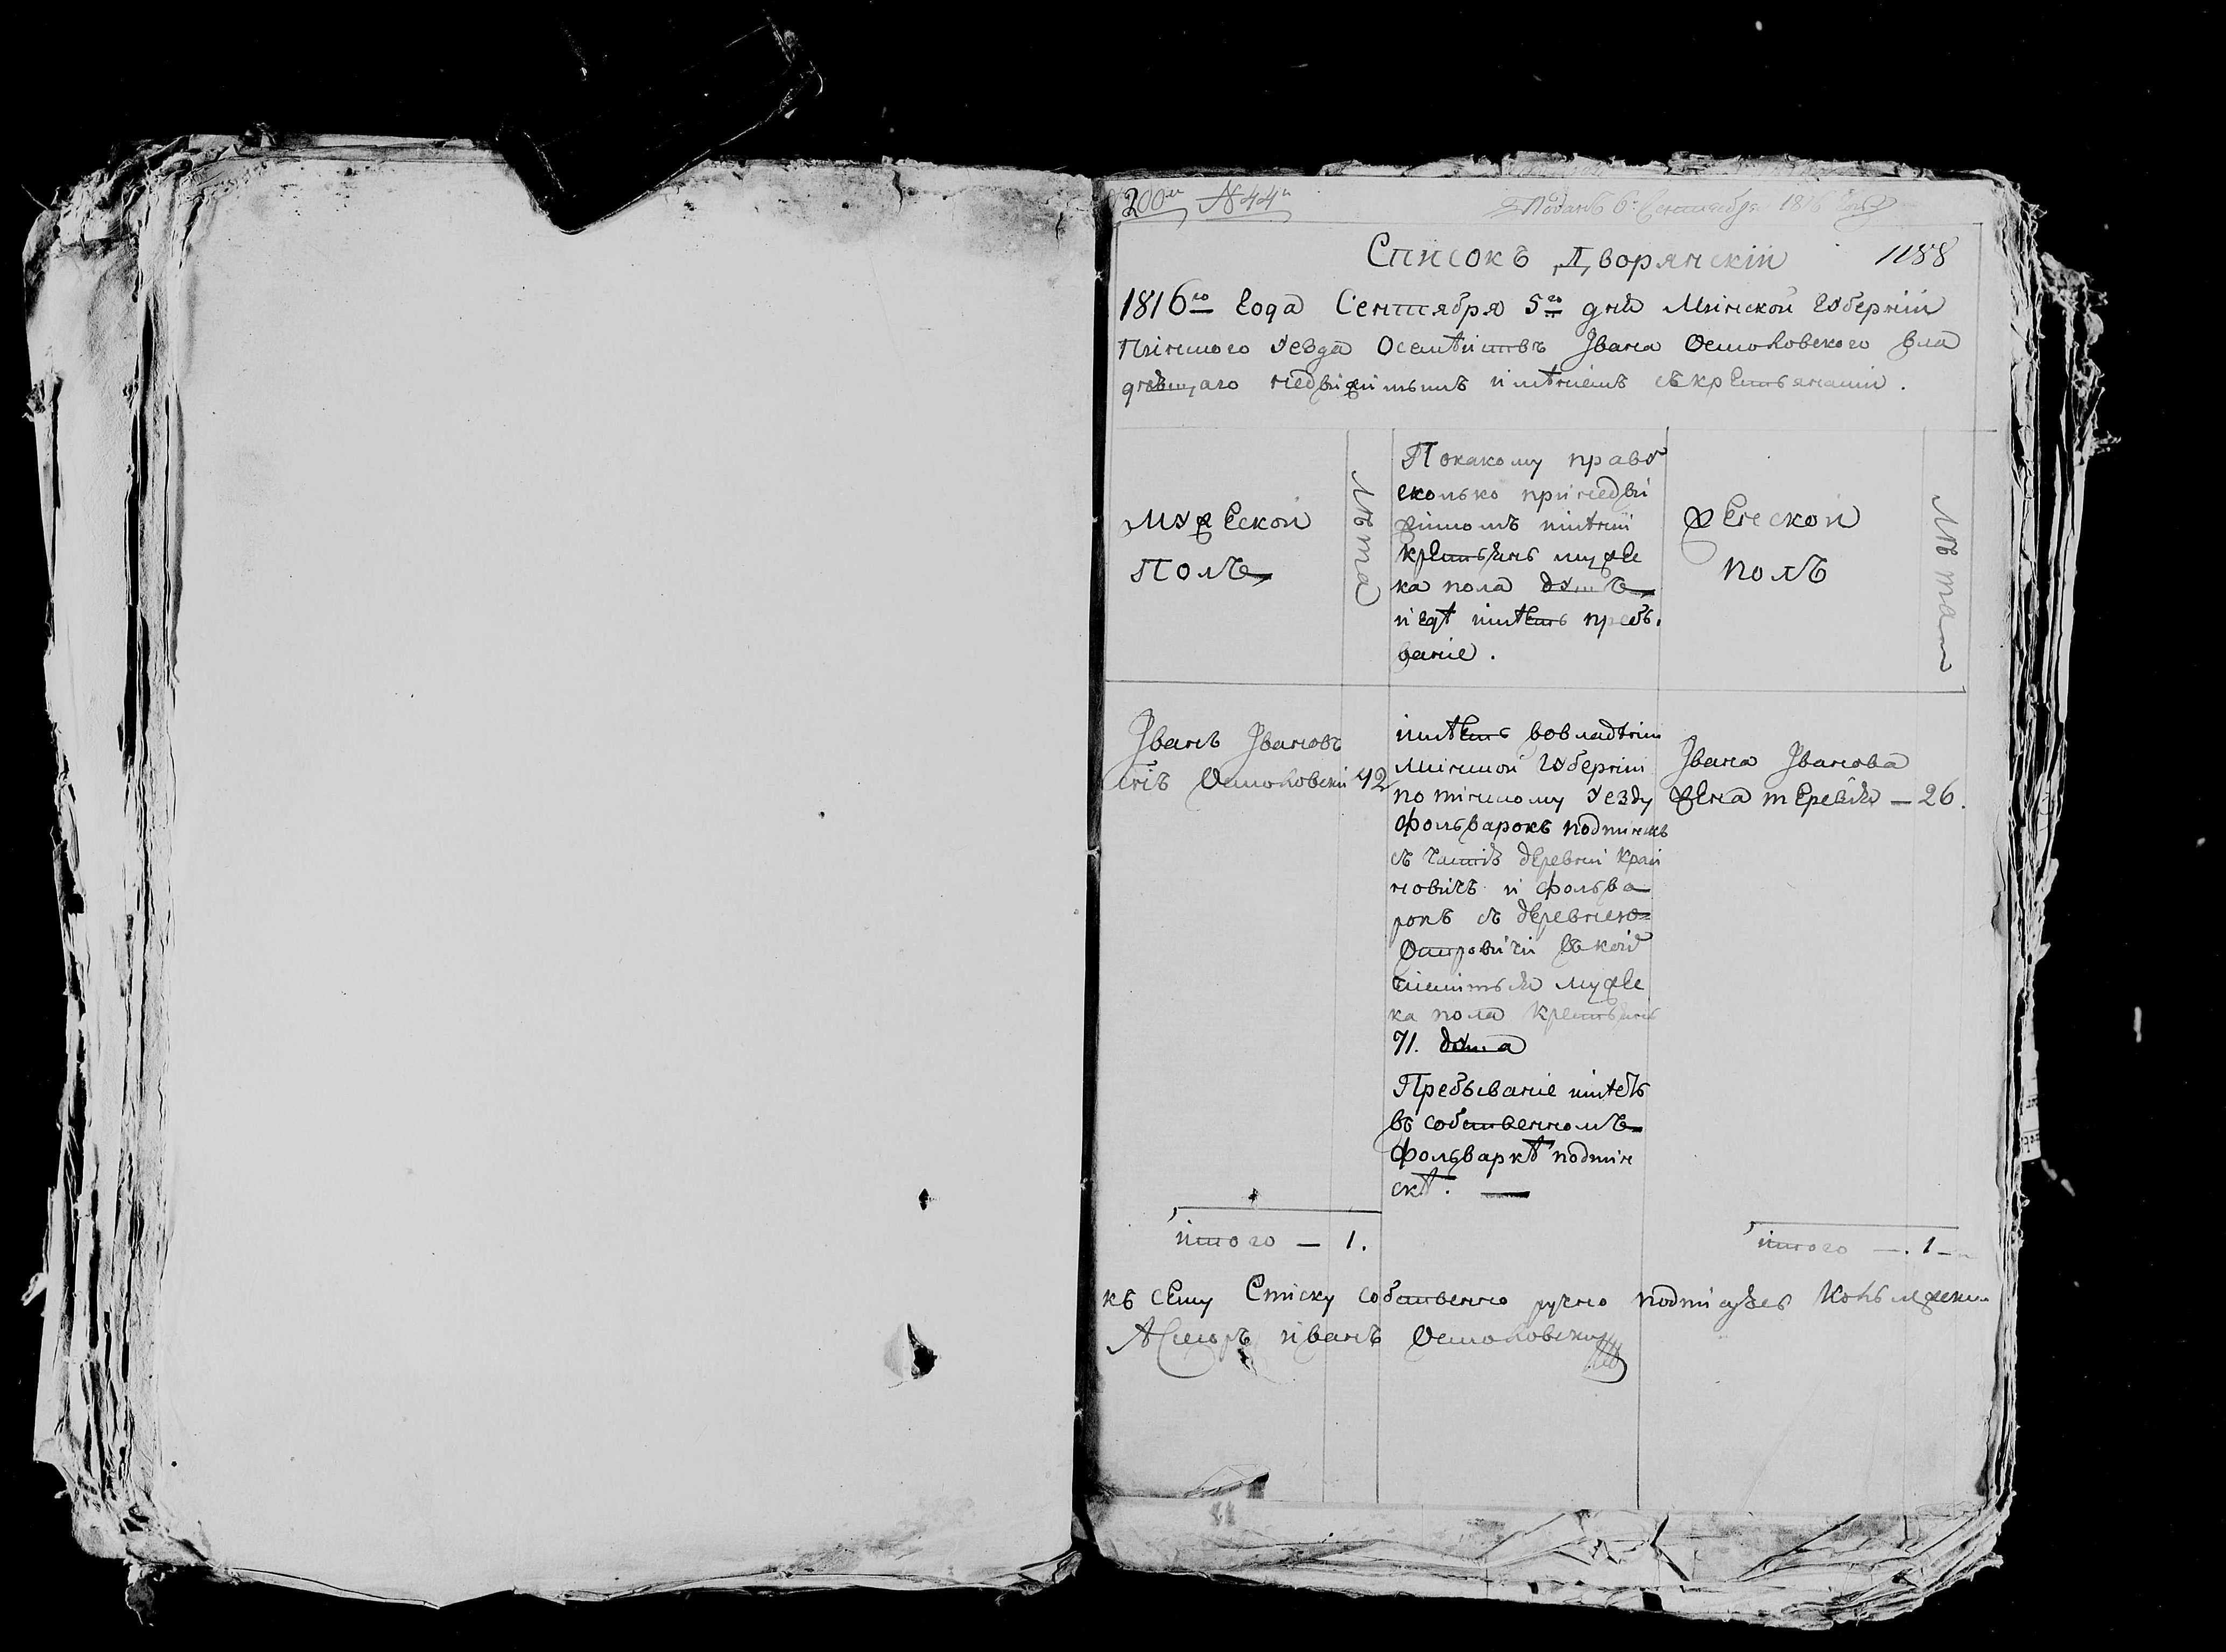 200й № 44й
Поданъ 6г Сентября 1816 года
Списокъ Дворянскій 1188
1816го Года Сентября 5го дня Минской Губерніи
Пинского Уезда Осемействе Ивана Осмоловского вла
деющаго недвижимымъ имѣніемъ съ крестьянами.
Мужеской
Полъ
Лѣта
По какому праву
сколько при недви
жимомъ имѣніи
крестьянъ мужес
ка пола душъ
и гдѣ имѣетъ преб.
ваніе.
Женской
полъ
Лѣта
Иванъ Ивановъ
снъ Осмоловски 42
имѣетъ вовладѣніи
Минской Губерніи
по пинскому Уезду
фольварокъ подпинскъ
съ частію деревни Край
новичъ и фольва
рокъ съ деревнею
Островичи въ коихъ
мужес
ка пола крестьянъ
71. душа
Пребываніе имѣетъ
въ собственномъ
фольваркѣ подпин
скѣ.
Ивана Иванова
жена терезія — 26.
итого — 1.
итого — 1
къ сему Списку собственно ручно подписуюсь
Асесоръ иванъ Осмоловски